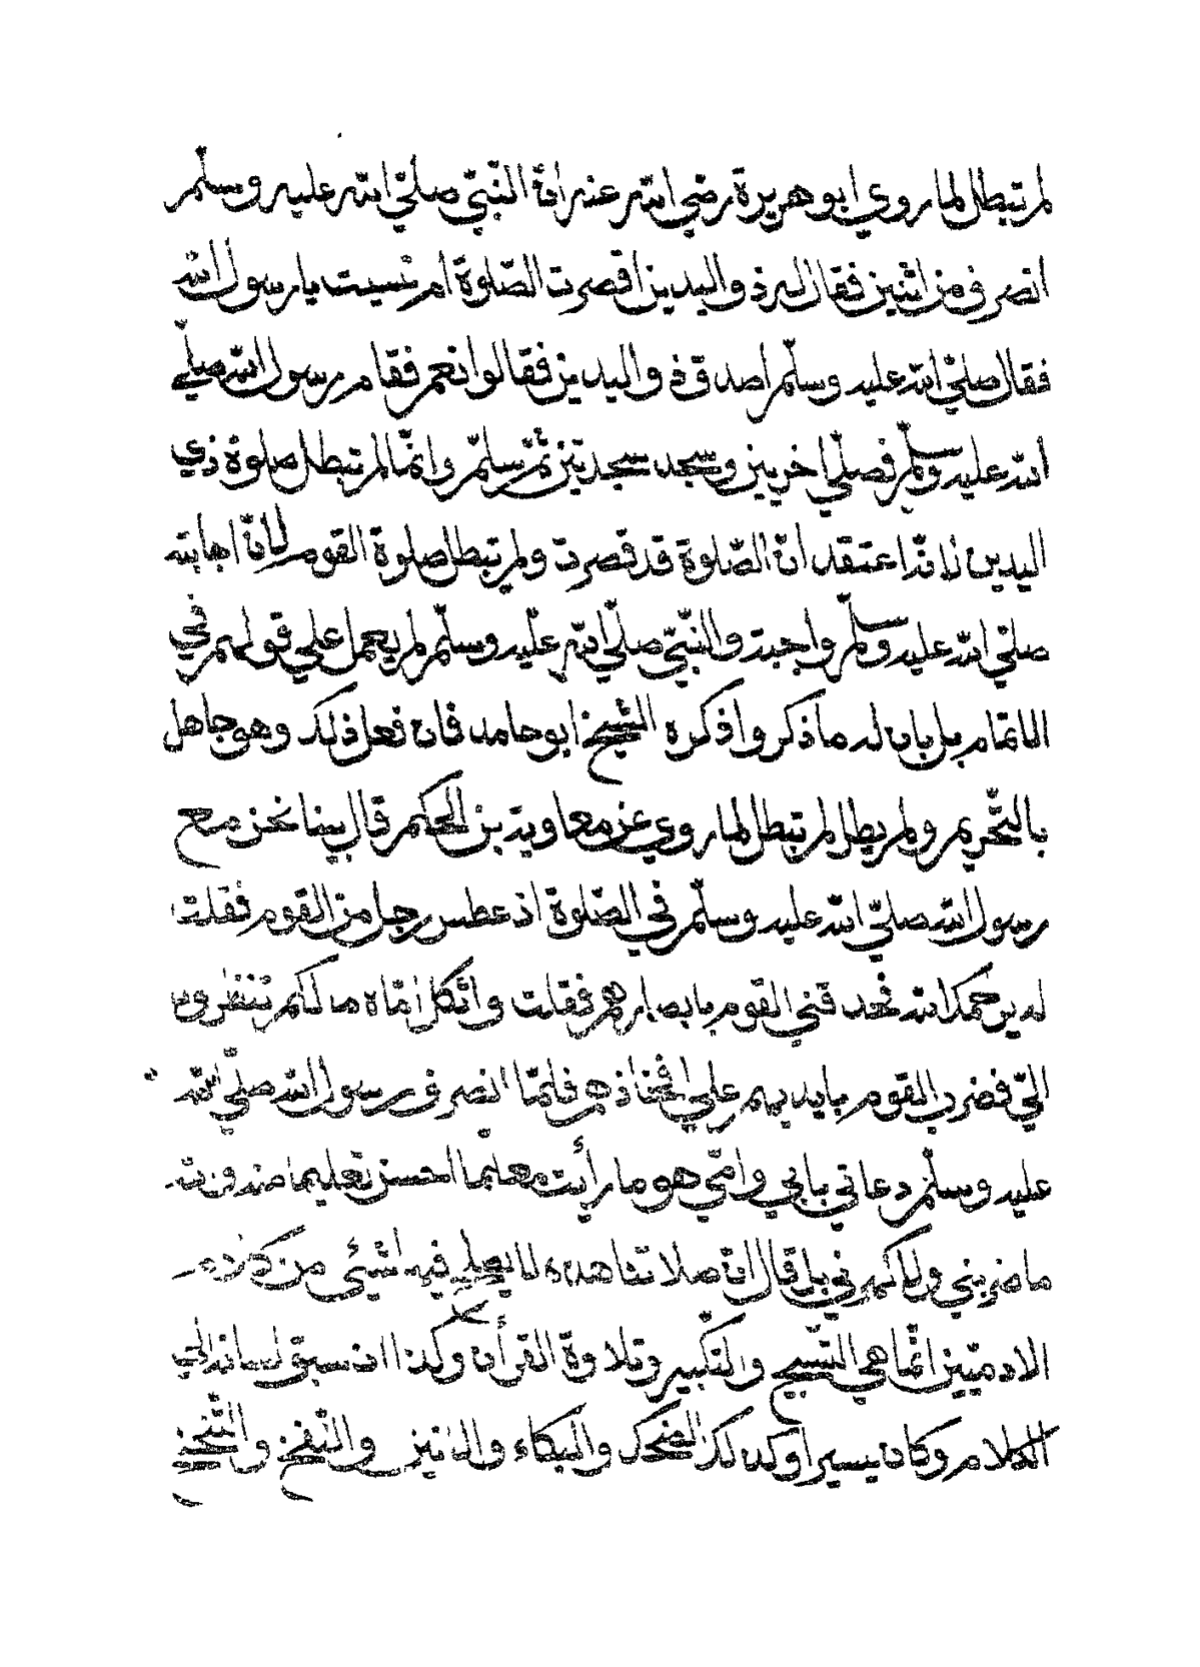 لم تبطل لما روي ابو هريرة رضي الله عنه أنّ النّبيّ صلّي الله عليه وسلّم
انصرف من اثنين فقال له ذو اليدين اقصرت الصّلوة أم نسيت يا رسول الله
فقال صلّي الله عليه وسلّم اصدق ذو اليدين فقالوا نعم فقام رسول الله صلّي
الله عليه وسلّم فصلّي اخريين وسجد سجدتين ثمّ سلّم وانمّا لم تبطل صلوة ذي
اليدين لانّه اعتقد انّ الصّلوة قد قصرت ولم تبطل صلوة القوم لانّ اجابته
صلّي الله عليه وسلّم واجبة والنّبيّ صلّي الله عليه وسلّم لم يعمل علي قولهم في
الاتمام بل بان له ما ذكروا ذكره الشّيخ ابو حامد فان فعل ذلك وهو جاهل
بالتّحريم ولم يطل لم تبطل لما روي عن معاوية بن الحكم قال بينا نحن مع
رسول الله صلّي الله عليه وسلّم في الصّلوة اذ عطس رجل من القوم فقلت
له يرحمك الله فحدقني القوم بابصارهم فقلت واثكل امّاه ما لكم تنظرون
اليّ فضرب القوم بايديهم علي افخاذهم فلمّا انصرف رسول الله صلّي الله
عليه وسلّم دعاني بابي وامّي هو ما رأيت معلّما احسن تعليما منه فوالله
ما ضربني ولا كهرني بل قال انّ صلاتنا هذه لا يصلح فيها شئي من كلام
الادميّين انّما هي التّسبيح والتّكبير وتلاوة القرأن وكذا ان سبق لسانه الي
الكلام وكان يسيرا وكذلك الضّحك والبكاء والانين والنّفخ والتّنحنح